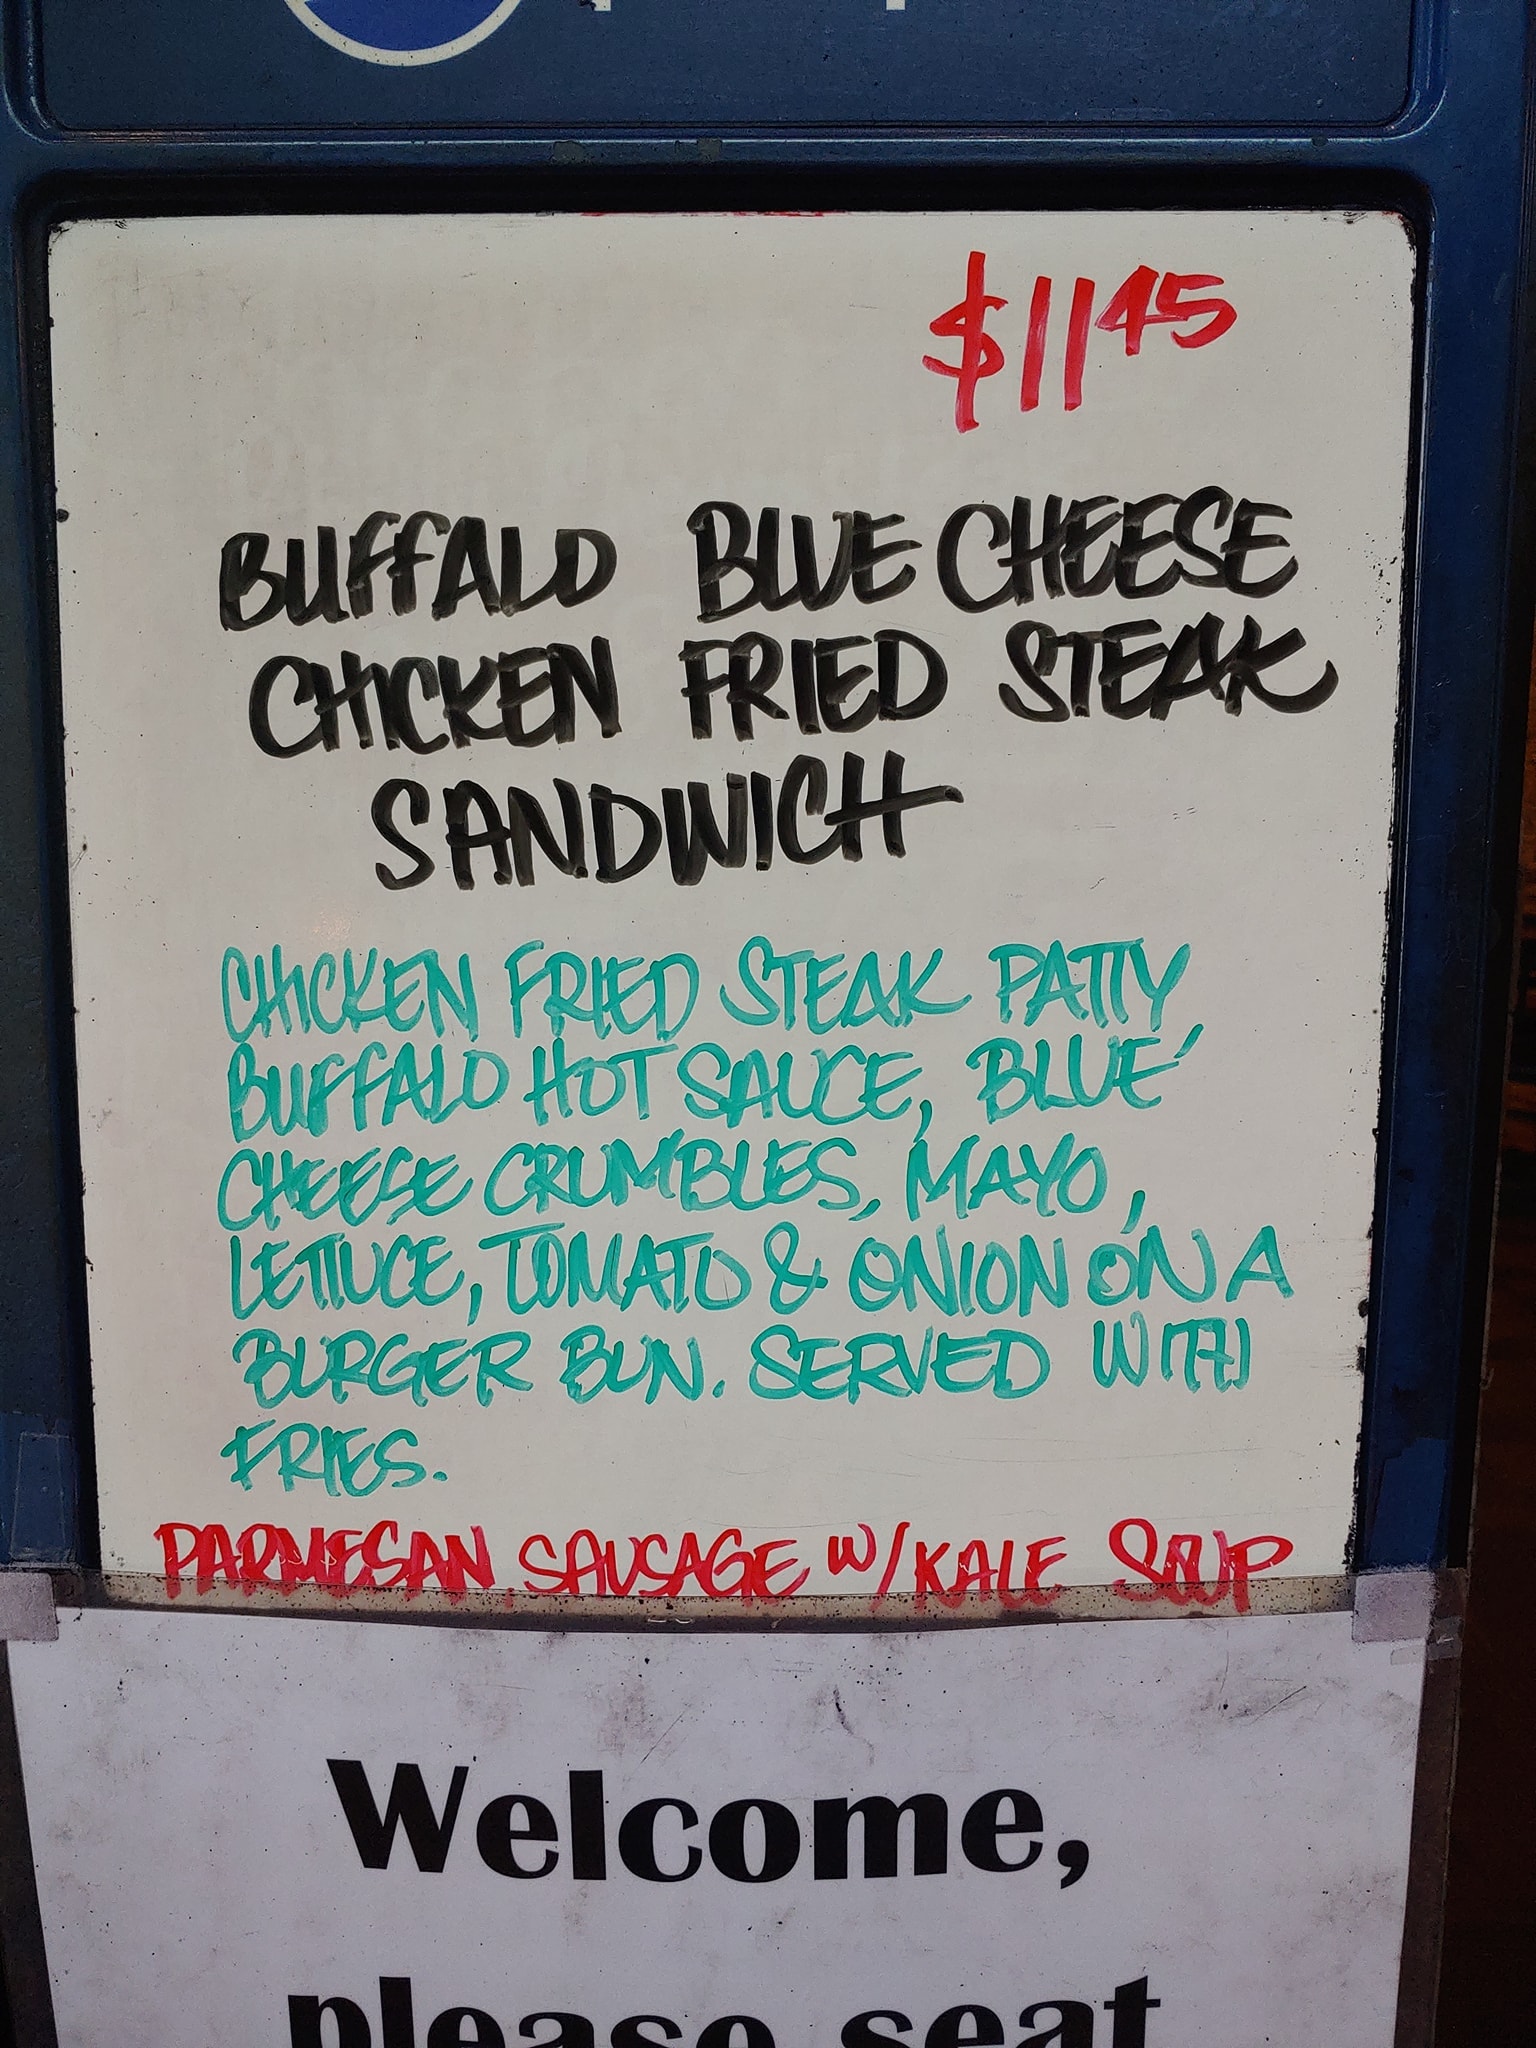 $11.45
BUFFALO BLUE CHEESE
CHICKEN FRIED STEAK
SANDWICH
CHICKEN FRIED STEAK PATTY,
BUFFALO HOT SAUCE, BLUE
CHEESE CRUMBLES, MAYO,
LETTUCE, TOMATO & ONION ON A
BURGER BUN. SERVED WITH
FRIES.
PARMESAN SAUSAGE W/KALE SOUP
Welcome,
please seat